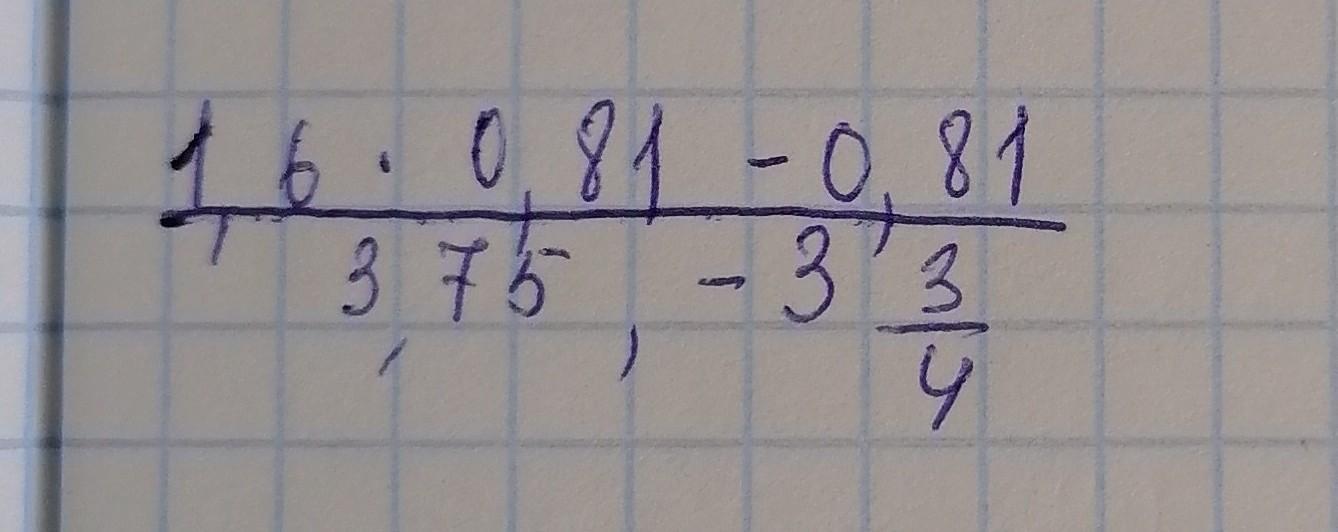 1,6 · 0,81 - 0,81
3,75, - 3 3/4